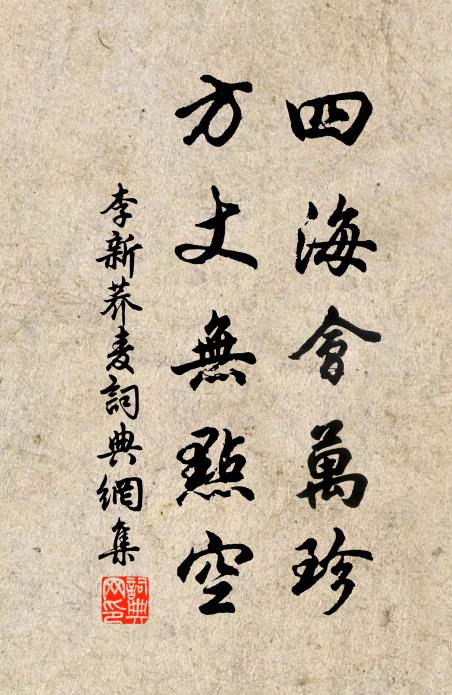 四海會萬珍
方丈無點空
李新荞麦詞典網集
詞典网印